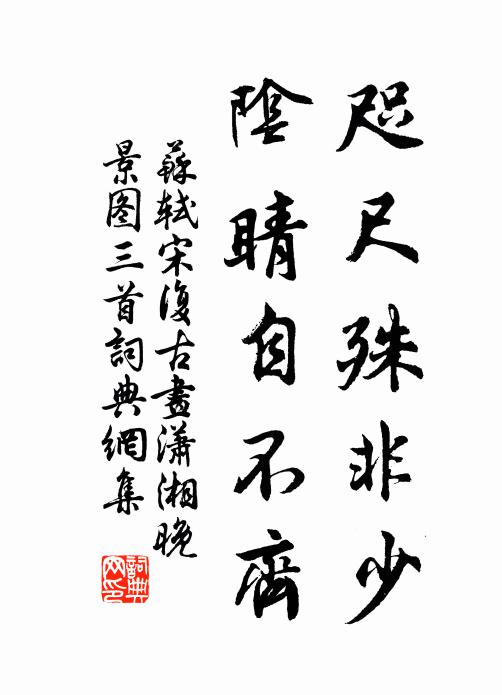 咫尺殊非少
陰晴自不齊
蘇軾宋復古畫瀟湘晚
景图三首詞典網集
詞典
网印